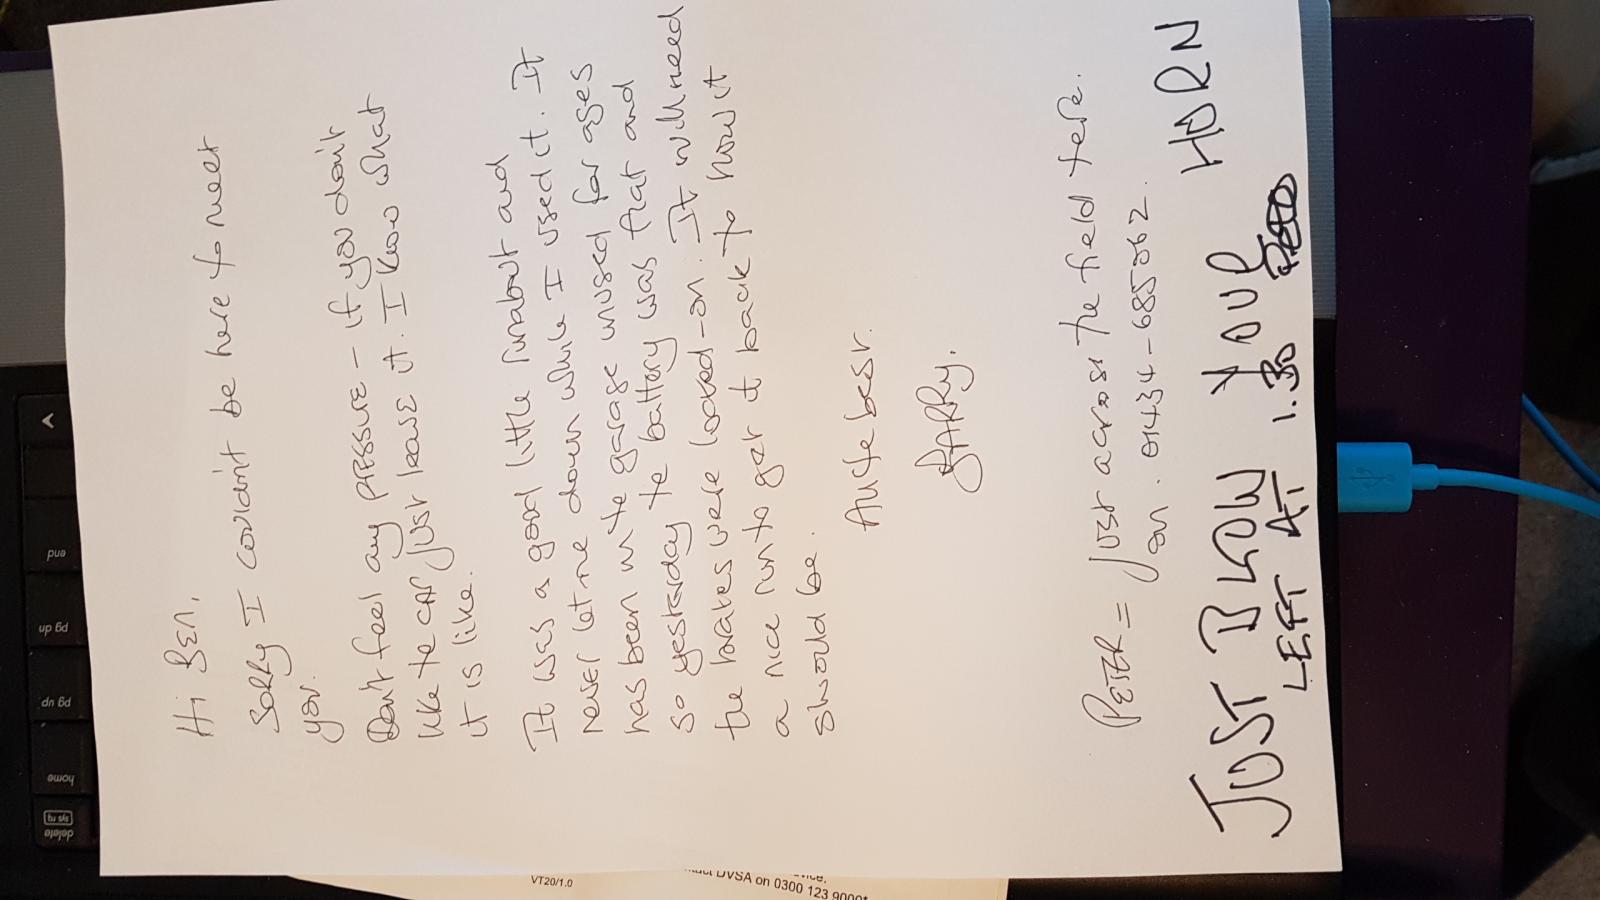 Hi Ben,
Sorry I couldn't be here to meet
you.
Don't feel any pressure - if you don't
like the car just leave it. I know what
it is like.
It was a good little runabout and
never let me down while I used it. It
has been in the garage unused for ages
so yesterday the battery was flat and
the brakes were locked-on. It will need
a nice run to get it back to how it
should be.
All the best.
PETER = Just across the field there.
on. 01434-685062.
JUST BLOW YOUR HORN
LEFT AT 1.30
delete
sys rq
home
pg up
pg dn
end
VT20/1.0
DVSA on 0300 123 9000